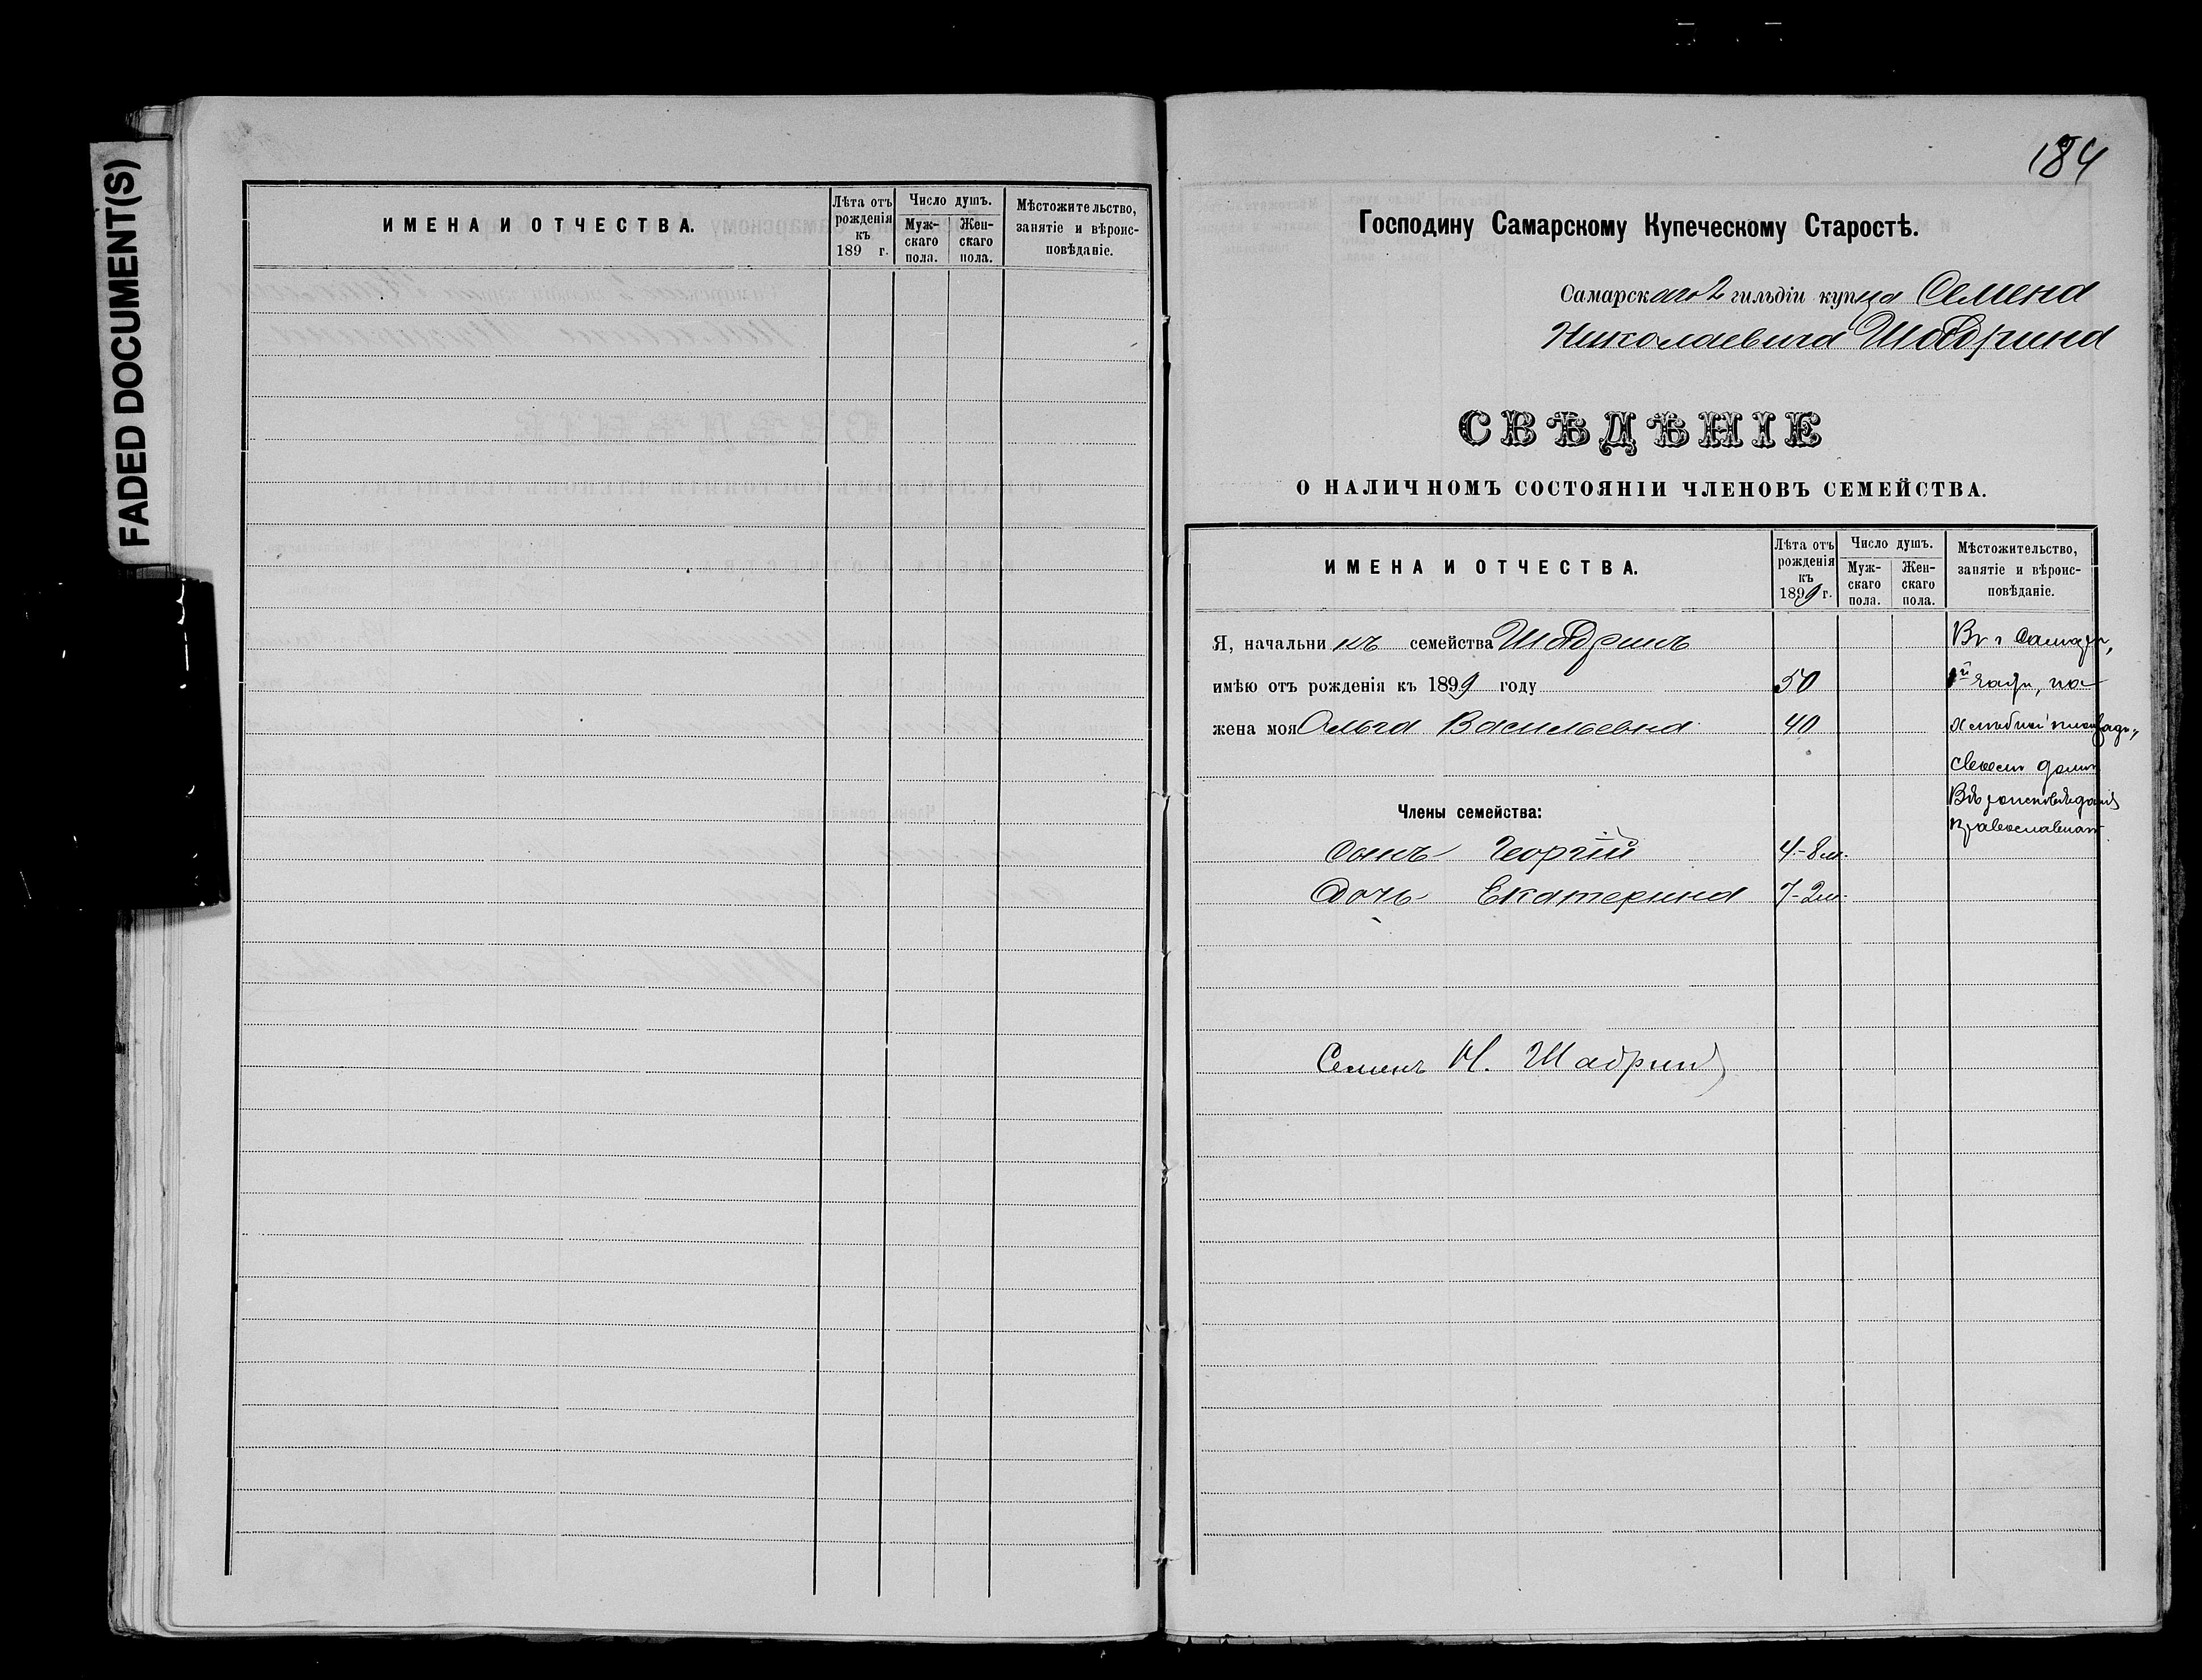 FADED DOCUMENT(S)
ИМЕНА И ОТЧЕСТВА.
Лѣта отъ рожденія къ 189 г.
Число душъ.
Муж-скаго пола.
Жен-скаго пола.
Мѣстожительство, занятіе и вѣроис-повѣданіе.
184
Господину Самарскому Купеческому Старостѣ.
Самарскаго 2 гильдіи купца Семена
Николаевича Шадрина
СВѢДѢНІЕ
О НАЛИЧНОМЪ СОСТОЯНІИ ЧЛЕНОВЪ СЕМЕЙСТВА.
ИМЕНА И ОТЧЕСТВА.
Лѣта отъ рожденія къ 1899 г.
Число душъ.
Муж-скаго пола.
Жен-скаго пола.
Мѣстожительство, занятіе и вѣроис-повѣданіе.
Я, начальникъ семейства Шадринъ Въ г Самарѣ,
имѣю отъ рожденія къ 1899 году 50 части, на
жена моя Ольга Васильевна 40 хлѣбной площади,
своемъ домѣ
Вѣроисповѣданія
Члены семейства: православнаго
Сынъ Георгій 4-8 м.
Дочь Екатерина 7-2 м.
Семенъ Н. Шадринъ